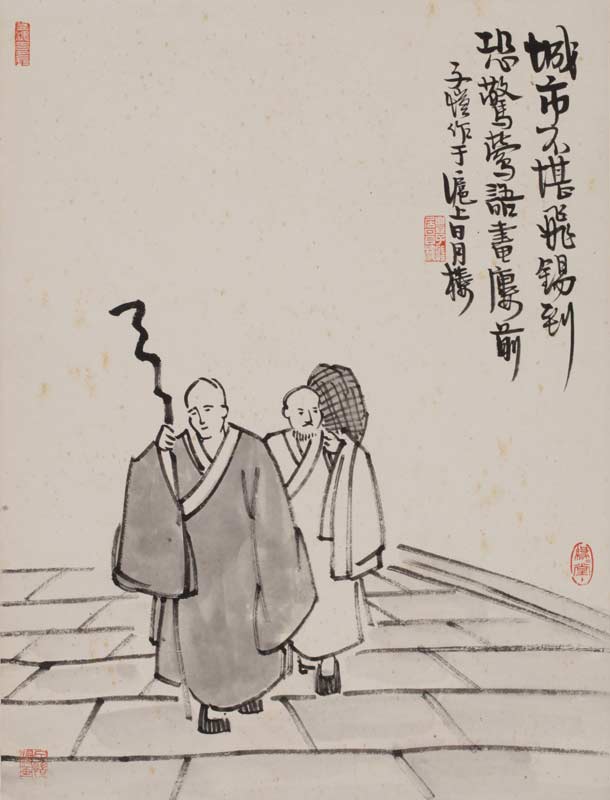 城市不堪飛錫到
恐驚鶯語畫廔前
子愷作于滬上日月樓